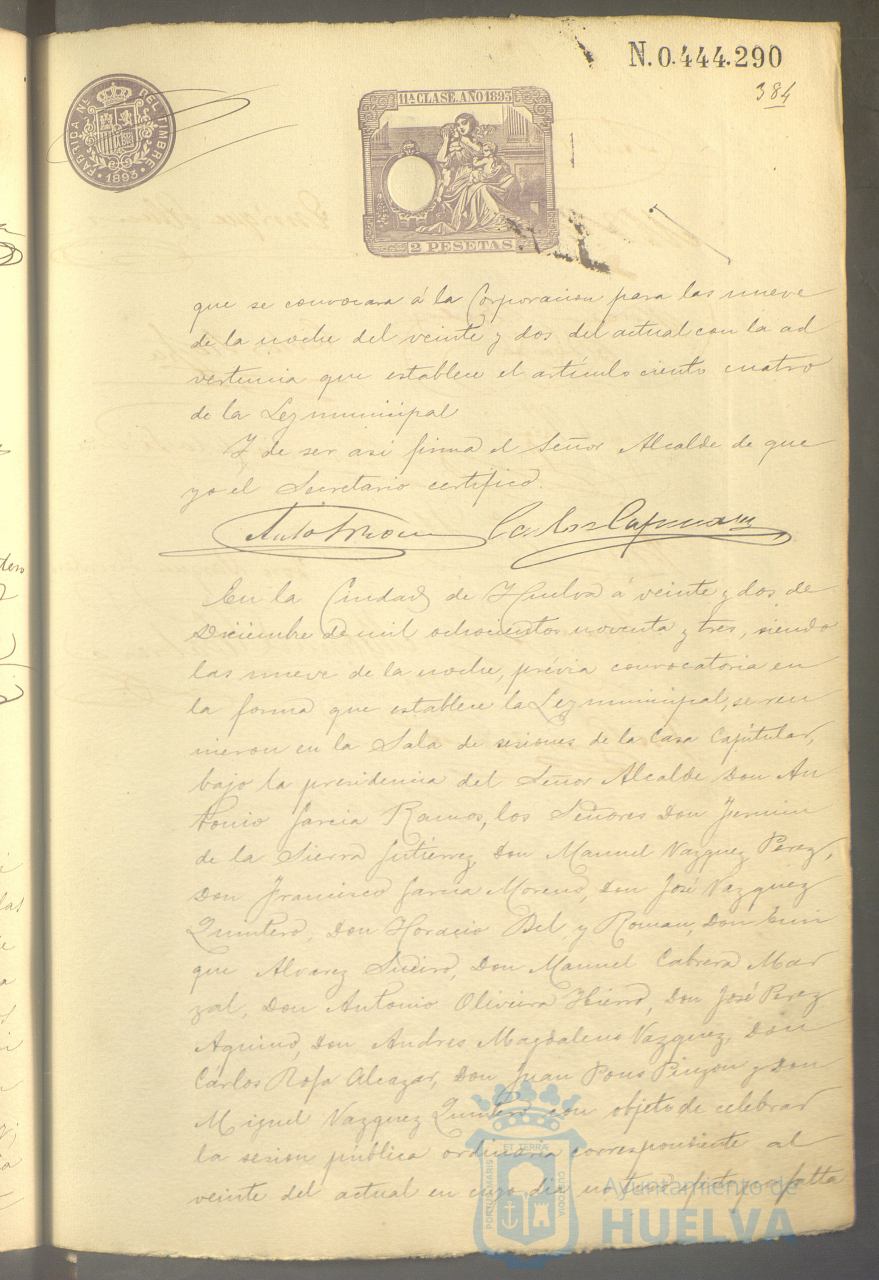 N.0.444.290
384
FABRICA NL. DEL TIMBRE
1893
11ª CLASE. AÑO 1893
2 PESETAS
que se convocara á la Corporacion para las nueve
de la noche del veinte y dos del actual con la ad
vertencia que establece el artículo ciento cuatro
de la Ley municipal
Y de ser así firma el Señor Alcalde de que
yo el Secretario certifico.
En la Ciudad de Huelva á veinte y dos de
Diciembre de mil ochocientos noventa y tres, siendo
las nueve de la noche, prévia convocatoria en
la forma que establece la Ley municipal, se reu
nieron en la Sala de sesiones de la Casa Capitular,
bajo la presidencia del Señor Alcalde Don An
tonio Garcia Ramos, los Señores Don Fermin
de la Sierra Gutierrez, Don Manuel Vazquez Perez,
Don Francisco Garcia Moreno, Don José Vazquez
Quintero, Don Horacio Bel y Roman, Don Enri
que Alvarez Sueiro, Don Manuel Cabrera Mar
zal, Don Antonio Oliveira Hierro, Don José Perez
Aquino, Don Andres Magdaleno Vazquez, Don
Carlos Rofa Alcazar, Don Juan Pons Pinzon y Don
Miguel Vazquez Quintero con objeto de celebrar
la sesion pública ordinaria correspondiente al
veinte del actual en cuyo dia no tuvo efecto por falta
PORTUS MARIS ET TERRÆ CUSTODIA
Ayuntamiento de
HUELVA